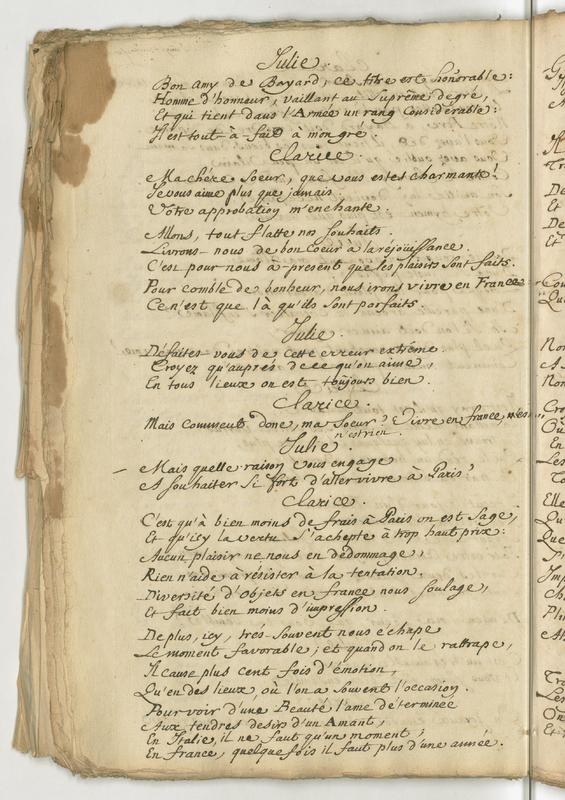 Julie.
Bon amy de Bayard; ce titre est honorable:
Homme d'honneur, vaillant au Suprême degré,
Et qui tient dans l'Armée un rang Considérable:
Il est tout à fait à mon gré.
Clarice.
Ma chere Soeur, que vous estes charmante!
Je vous aime plus que jamais.
Votre approbation m'enchante.
Allons, tout flatte nos souhaits.
Livrons-nous de bon Coeur à la rejouissance.
C'est pour nous à-present que les plaisirs sont faits.
Pour comble de bonheur, nous irons vivre en France
Ce n'est que là qu'ils sont parfaits.
Julie.
Défaites-vous de cette erreur extrême.
Croyez qu'auprés de ce qu'on aime,
En tous lieux on est toûjours bien.
Clarice.
Mais comment donc, ma Soeur? Vivre en france,
n'est rien.
Julie.
Mais quelle raison vous engage
A souhaiter si fort d'aller vivre à Paris?
Clarice.
C'est qu'à bien moins de frais à Paris on est Sage,
Et qu'icy la vertu s'achepte à trop haut prix:
Aucun plaisir ne nous en dédommage,
Rien n'aide à résister à la tentation.
Diversité d'Objets en france nous soulage,
Et fait bien moins d'impression.
De plus, icy, trés-souvent nous échape
Le moment favorable; et quand on le rattrape,
Il cause plus cent fois d'émotion,
Qu'en des lieux, où l'on a souvent l'occasion.
Pour voir d'une Beauté l'ame determinée
Aux tendres desirs d'un Amant,
En Italie, il ne faut qu'un moment;
En france, quelque fois il faut plus d'une année.